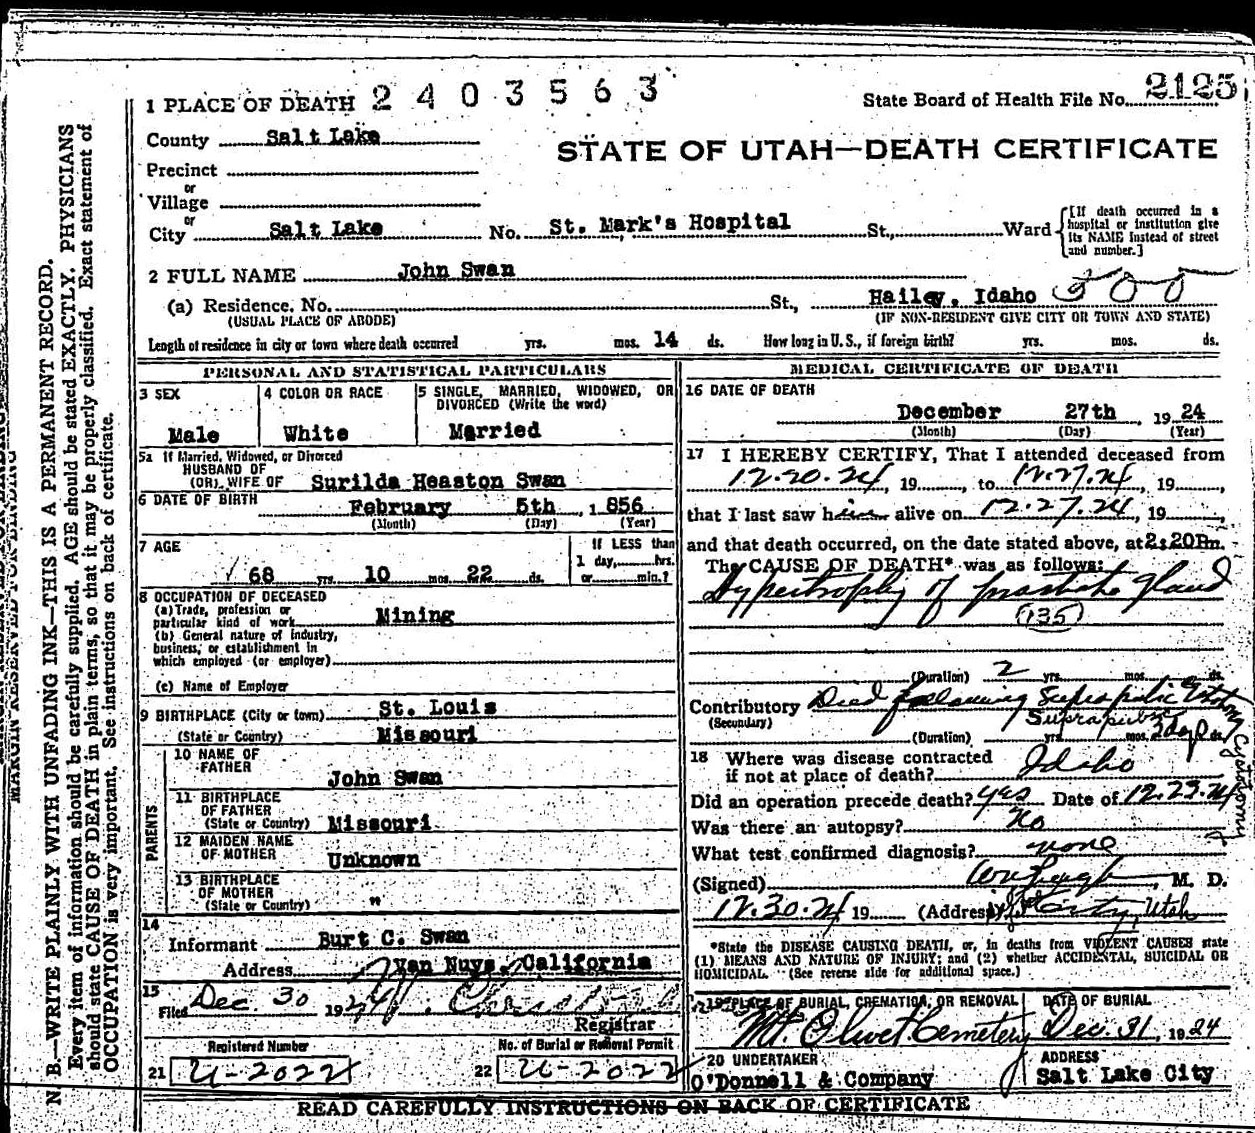 1 PLACE OF DEATH 2403563 State Board of Health File No. 2125
County Salt Lake
STATE OF UTAH—DEATH CERTIFICATE
Precinct
or
Village
or
City Salt Lake No. St. Mark's Hospital St., Ward [If death occurred in a hospital or institution give its NAME instead of street and number.]
2 FULL NAME John Swan
(a) Residence. No. St., Hailey, Idaho 500
(USUAL PLACE OF ABODE) (IF NON-RESIDENT GIVE CITY OR TOWN AND STATE)
Length of residence in city or town where death occurred yrs. mos. 14 ds. How long in U. S., if foreign birth? yrs. mos. ds.
PERSONAL AND STATISTICAL PARTICULARS
3 SEX 4 COLOR OR RACE 5 SINGLE, MARRIED, WIDOWED, OR DIVORCED (Write the word)
Male White Married
5a If Married, Widowed, or Divorced
HUSBAND OF
(OR) WIFE OF Surilda Heaston Swan
6 DATE OF BIRTH February 5th, 1856
(Month) (Day) (Year)
7 AGE If LESS than
1 day, hrs.
68 yrs. 10 mos. 22 ds. or min.?
8 OCCUPATION OF DECEASED
(a) Trade, profession or
particular kind of work Mining
(b) General nature of industry,
business, or establishment in
which employed (or employer)
(c) Name of Employer
9 BIRTHPLACE (City or town) St. Louis
(State or Country) Missouri
PARENTS
10 NAME OF
FATHER John Swan
11 BIRTHPLACE
OF FATHER
(State or Country) Missouri
12 MAIDEN NAME
OF MOTHER Unknown
13 BIRTHPLACE
OF MOTHER
(State or Country) "
14
Informant Burt C. Swan
Address Van Nuys, California
15
Filed Dec. 30 1924
Registrar
Registered Number No. of Burial or Removal Permit
21 U-2022 22 U-2022
MEDICAL CERTIFICATE OF DEATH
16 DATE OF DEATH
December 27th 1924
(Month) (Day) (Year)
17 I HEREBY CERTIFY, That I attended deceased from
12.20.24, 19, to 12.27.24, 19,
that I last saw him alive on 12.27.24, 19
and that death occurred, on the date stated above, at 2:20Pm.
The CAUSE OF DEATH* was as follows:
Hypertrophy of prostate gland
135
(Duration) 2 yrs. mos. ds.
Contributory Died following Suprapubic
(Secondary) Suprapubic Cystotomy
(Duration) yrs. mos. ds.
18 Where was disease contracted
if not at place of death? Idaho
Did an operation precede death? yes Date of 12.23.24
Was there an autopsy? No
What test confirmed diagnosis? none
(Signed) , M. D.
12.30.24 19 (Address) Utah
*State the DISEASE CAUSING DEATH, or, in deaths from VIOLENT CAUSES state
(1) MEANS AND NATURE OF INJURY; and (2) whether ACCIDENTAL, SUICIDAL OR
HOMICIDAL. (See reverse side for additional space.)
19 PLACE OF BURIAL, CREMATION, OR REMOVAL DATE OF BURIAL
Mt. Olivet Cemetery Dec. 31, 1924
20 UNDERTAKER ADDRESS
O'Donnell & Company Salt Lake City
READ CAREFULLY INSTRUCTIONS ON BACK OF CERTIFICATE
MARGIN RESERVED FOR BINDING
N. B.—WRITE PLAINLY WITH UNFADING INK—THIS IS A PERMANENT RECORD.
Every item of information should be carefully supplied. AGE should be stated EXACTLY. PHYSICIANS
should state CAUSE OF DEATH in plain terms, so that it may be properly classified. Exact statement of
OCCUPATION is very important. See instructions on back of certificate.